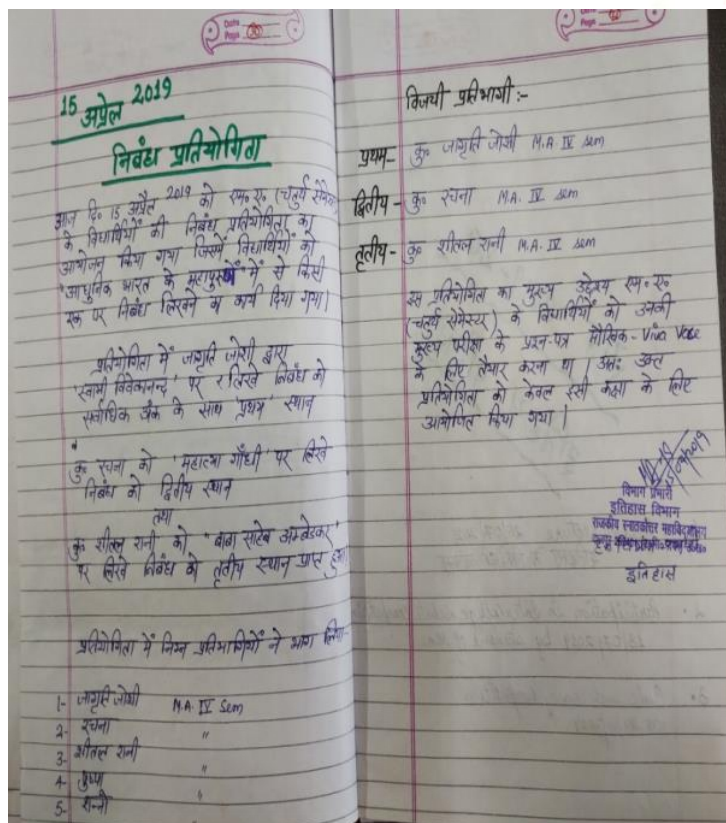 Date
Page
15 अप्रेल 2019
निबंध प्रतियोगिता
आज दि० 15 अप्रैल 2019 को एम० ए० (चतुर्थ सेमेस्टर
के विधार्थियों की निबंध प्रतियोगिता का
आयोजन किया गया जिसमें विधार्थियों को
"आधुनिक भारत के महापुरुषों" में से किसी
एक पर निबंध लिखने का कार्य दिया गया।
प्रतियोगिता में जागृति जोशी द्वारा
'स्वामी विवेकानन्द' पर लिखे निबंध को
सर्वाधिक अंक के साथ 'प्रथम' स्थान
कु० रचना को 'महात्मा गाँधी' पर लिखे
निबंध को द्वितीय स्थान
तथा
कु० शीतल रानी को "बाबा साहेब अम्बेडकर"
पर लिखे निबंध को तृतीय स्थान प्राप्त हुआ
प्रतियोगिता में निम्न प्रतिभागियों ने भाग लिया-
1- जागृति जोशी M.A. IV Sem
2- रचना "
3- शीतल रानी "
4- पुष्पा "
5-
Page
विजयी प्रतिभागी :-
प्रथम- कु० जागृति जोशी M.A. IV Sem
द्वितीय - कु० रचना M.A. IV Sem
तृतीय - कु० शीतल रानी M.A. IV Sem
इस प्रतियोगिता का मुख्य उद्देश्य एम० ए०
(चतुर्थ सेमेस्टर) के विधार्थियों को उनकी
मुख्य परीक्षा के प्रश्न-पत्र मौखिक - Viva Voce
के लिए तैयार करना था। अतः उक्त
प्रतियोगिता को केवल इसी कक्षा के लिए
आयोजित किया गया।
15/04/2019
विभाग प्रभारी
इतिहास विभाग
राजकीय स्नातकोत्तर महाविद्यालय
इतिहास